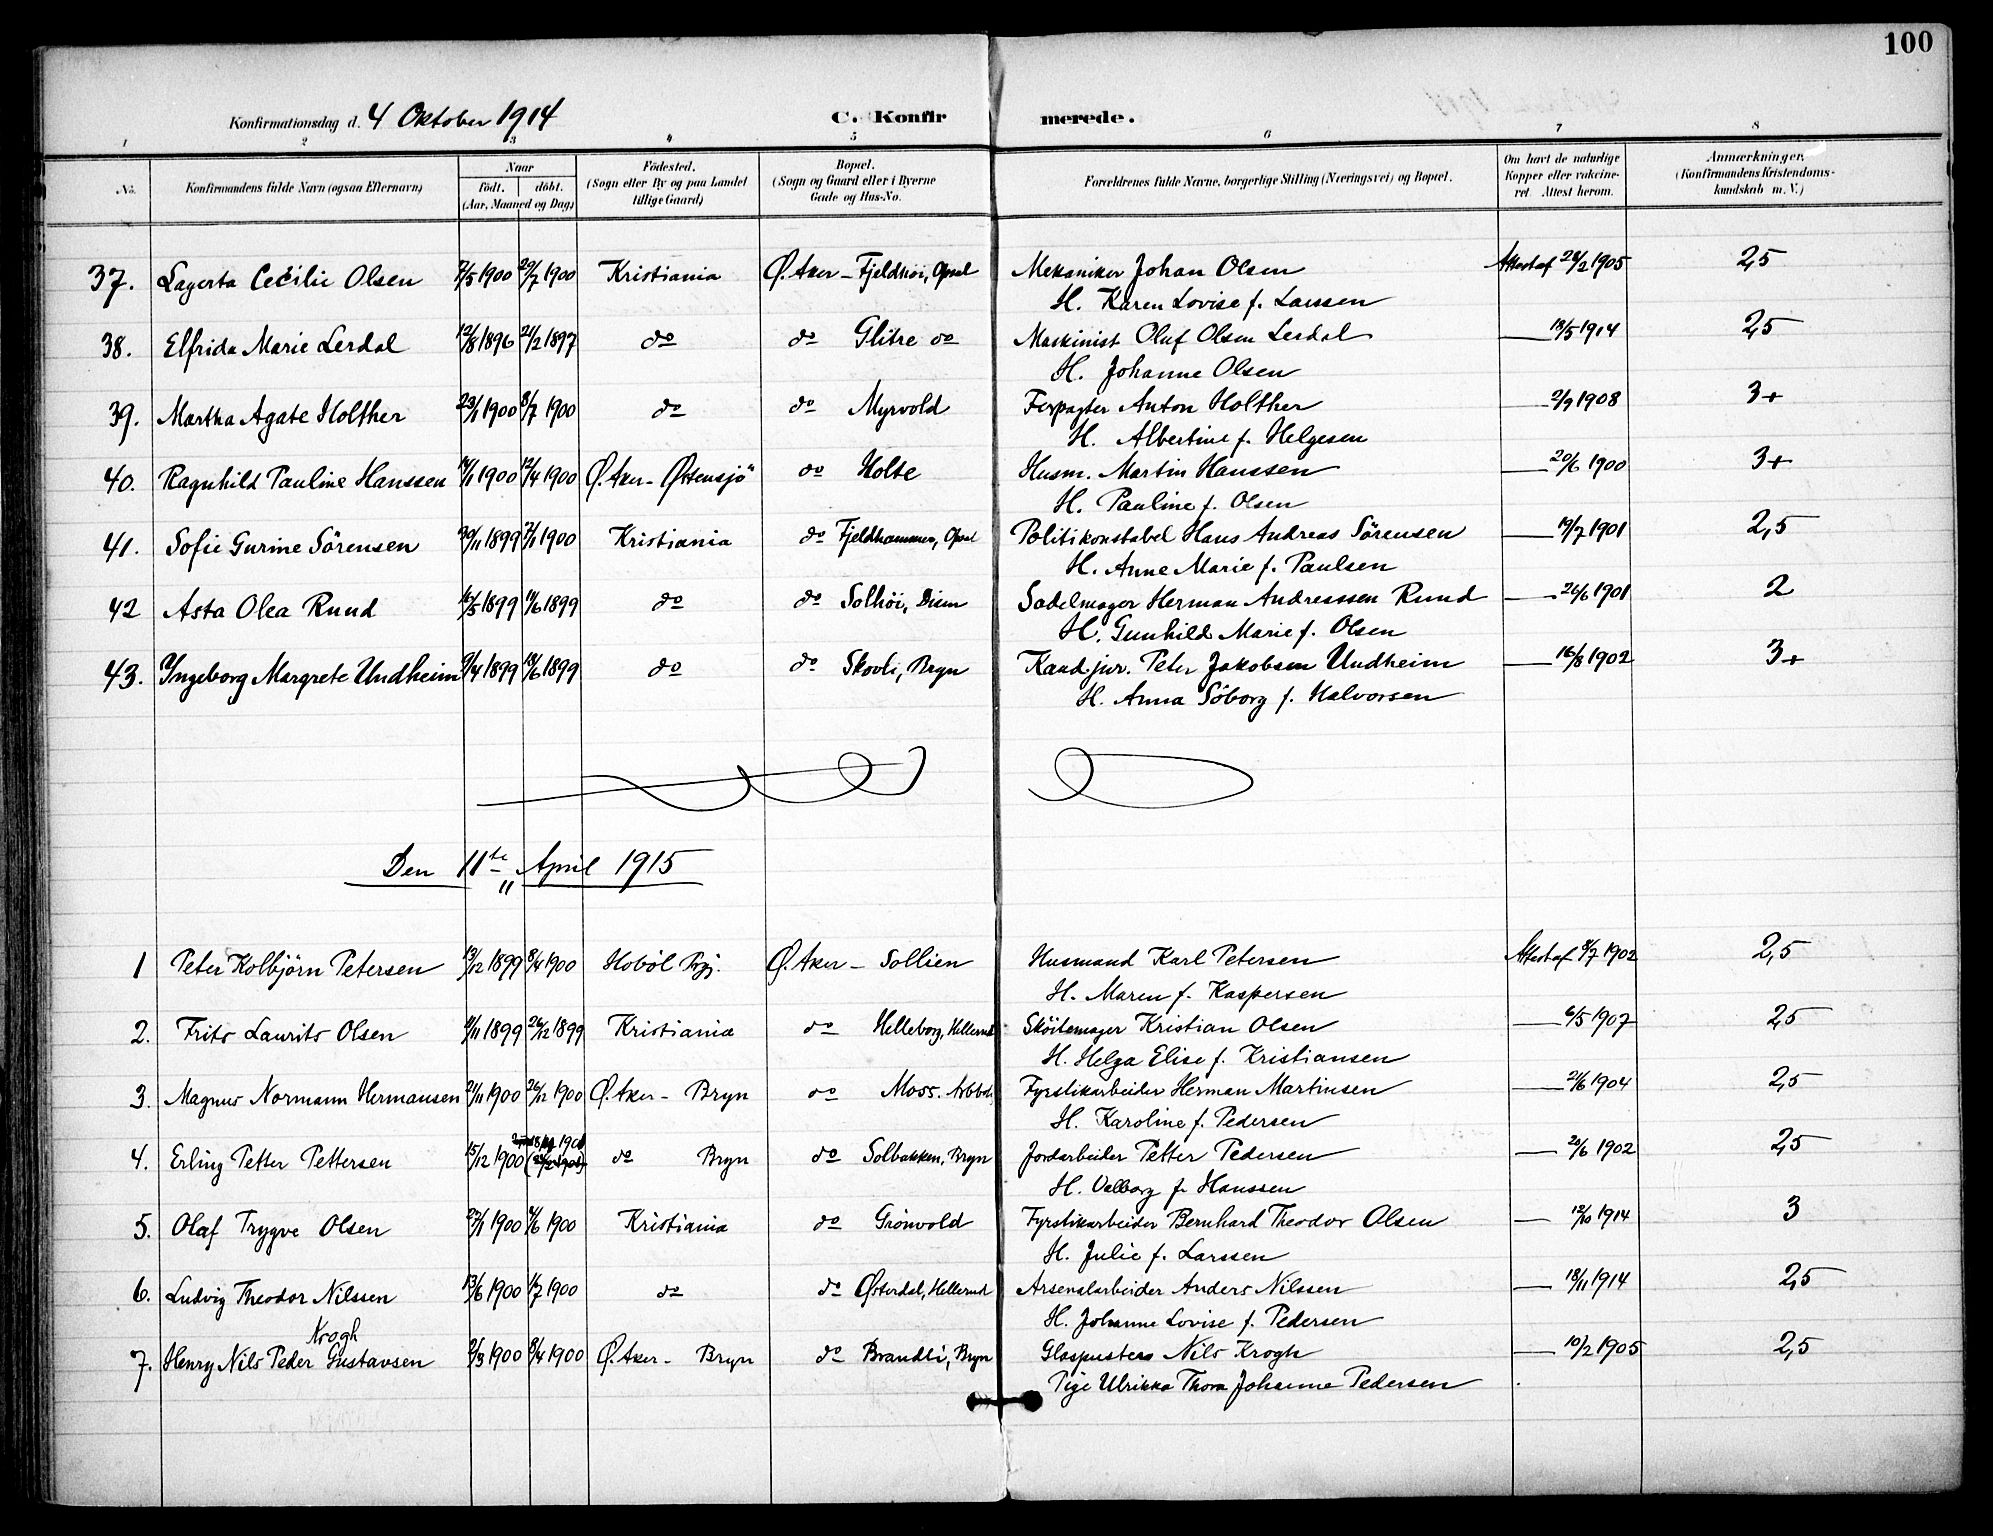 100
Konfirmationsdag d. 4 Oktober 1914 C. Konfir merede.
1 2 3 4 5 6 7 8
No. Konfirmandens fulde Navn (ogsaa Efternavn) Naar födt. döbt. (Aar, Maaned og Dag) Födested. (Sogn eller By og paa Landet tillige Gaard) Bopæl. (Sogn og Gaard eller i Byerne Gade og Hus-No. Forældrenes fulde Navne, borgerlige Stilling (Næringsvei) og Bopæl. Om havt de naturlige Kopper eller vakcineret. Attest herom. Anmærkninger. (Konfirmandens Kristendomskundskab m. V.)
37. Lagerta Cecilie Olsen 7/5 1900 29/7 1900 Kristiania Ø. Aker - Fjeldhöi, Opsal Mekaniker Johan Olsen Attestaf 28/2 1905 2,5
H. Karen Lovise f. Larssen
38. Elfrida Marie Lerdal 12/8 1896 21/2 1897 do do Glitre do Maskinist Oluf Olsen Lerdal — 18/5 1914 2,5
H. Johanne Olsen
39. Martha Agate Holther 23/1 1900 8/7 1900 do do Myrvold Forpagter Anton Holther — 2/9 1908 3+
H. Albertine f. Helgesen
40. Ragnhild Pauline Hanssen 14/1 1900 12/4 1900 Ø. Aker - Østensjö do Holte Husm. Martin Hanssen — 20/6 1900 3+
H. Pauline f. Olsen
41. Sofie Gurine Sörensen 30/11 1899 7/1 1900 Kristiania do Fjeldhammer, Opsal Politikonstabel Hans Andreas Sörensen — 19/7 1901 2,5
H. Anne Marie f. Paulsen
42 Asta Olea Ruud 16/5 1899 11/6 1899 do do Solhöi, Disen Sadelmager Herman Andreassen Ruud — 26/6 1901 2
H. Gunhild Marie f. Olsen
43. Yngeborg Margrete Undheim 9/4 1899 18/6 1899 do do Skovli, Bryn Kand. jur. Peter Jakobsen Undheim — 16/8 1902 3+
H. Anna Söborg f. Halvorsen
Den 11te April 1915
1 Peter Kolbjörn Petersen 13/12 1899 8/4 1900 Hobøl Prgj. Ø. Aker - Sollien Husmand Karl Petersen Attestaf 8/7 1902 2,5
H. Maren f. Kaspersen
2. Frits Laurits Olsen 11/11 1899 26/12 1899 Kristiania do Helleborg, Hellerud Sköitemager Kristian Olsen — 6/5 1907 2,5
H. Helga Elise f. Kristiansen
3. Magnus Normann Hermansen 21/11 1900 26/12 1900 Ø. Aker - Bryn do Moss. Arbbol. Fyrstikarbeider Herman Martinsen — 21/6 1904 2,5
H. Karoline f. Pedersen
4. Erling Petter Pettersen 15/12 1900 do Bryn do Solbakken, Bryn Jordarbeider Petter Pedersen — 20/6 1902 2,5
H. Valborg f. Hanssen
5. Olaf Trygve Olsen 22/1 1900 4/6 1900 Kristiania do Grönvold Fyrstikarbeider Bernhard Theodor Olsen — 12/10 1914 3
H. Julie f. Larssen
6. Ludvig Theodor Nilssen 13/6 1900 1/7 1900 do do Østerdal, Hellerud Arsenalarbeider Anders Nilssen — 18/11 1914 2,5
H. Johanne Lovise f. Pedersen
Krogh
7. Henry Nils Peder Gustavsen 2/3 1900 8/4 1900 Ø. Aker - Bryn do Brandli, Bryn Glaspusters Nils Krogh — 10/2 1905 2,5
Pige Ulrikka Thora Johanne Pedersen